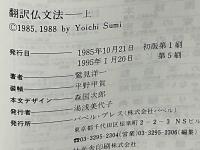 翻訳仏文法——上
©1985, 1988 by Yoichi Sumi
発行日 1985年10月21日 初版第1刷
1995年1月20日 第5刷
著者 鷲見洋一
装幀 平野甲賀
本文デザイン 森国次郎
発行者 湯浅美代子
発行所 バベル・プレス(株式会社バベル)
東京都千代田区猿楽町2-2-3 NSビル
03-3295-2304(営業) 03-3295-
FAX 03-3295-2306(編集)